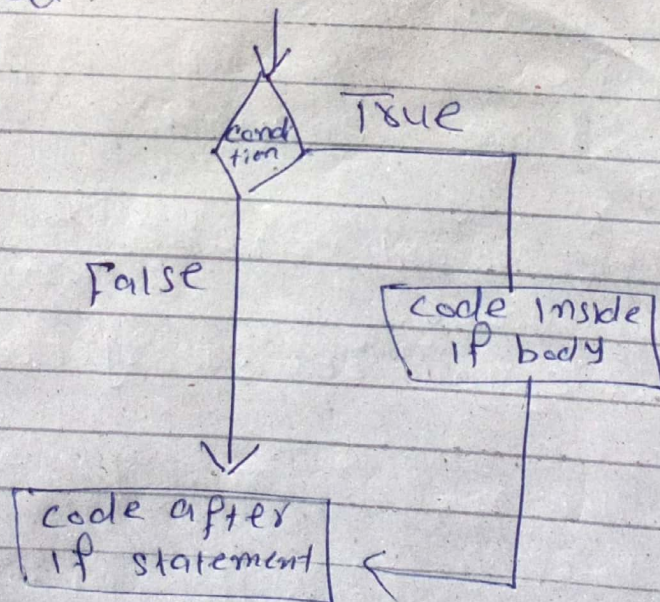 cond
tion
True
False
code inside
if body
code after
if statement